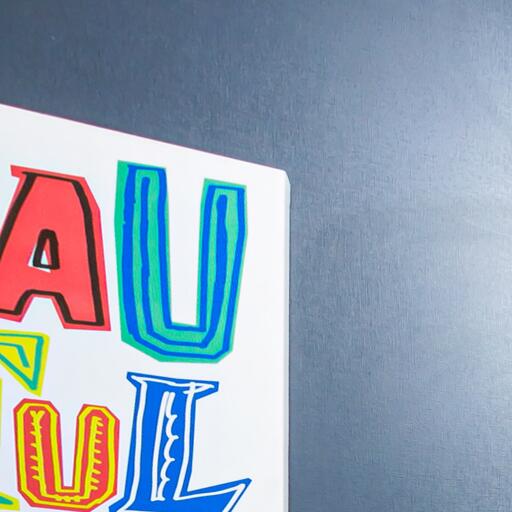 AU
UL